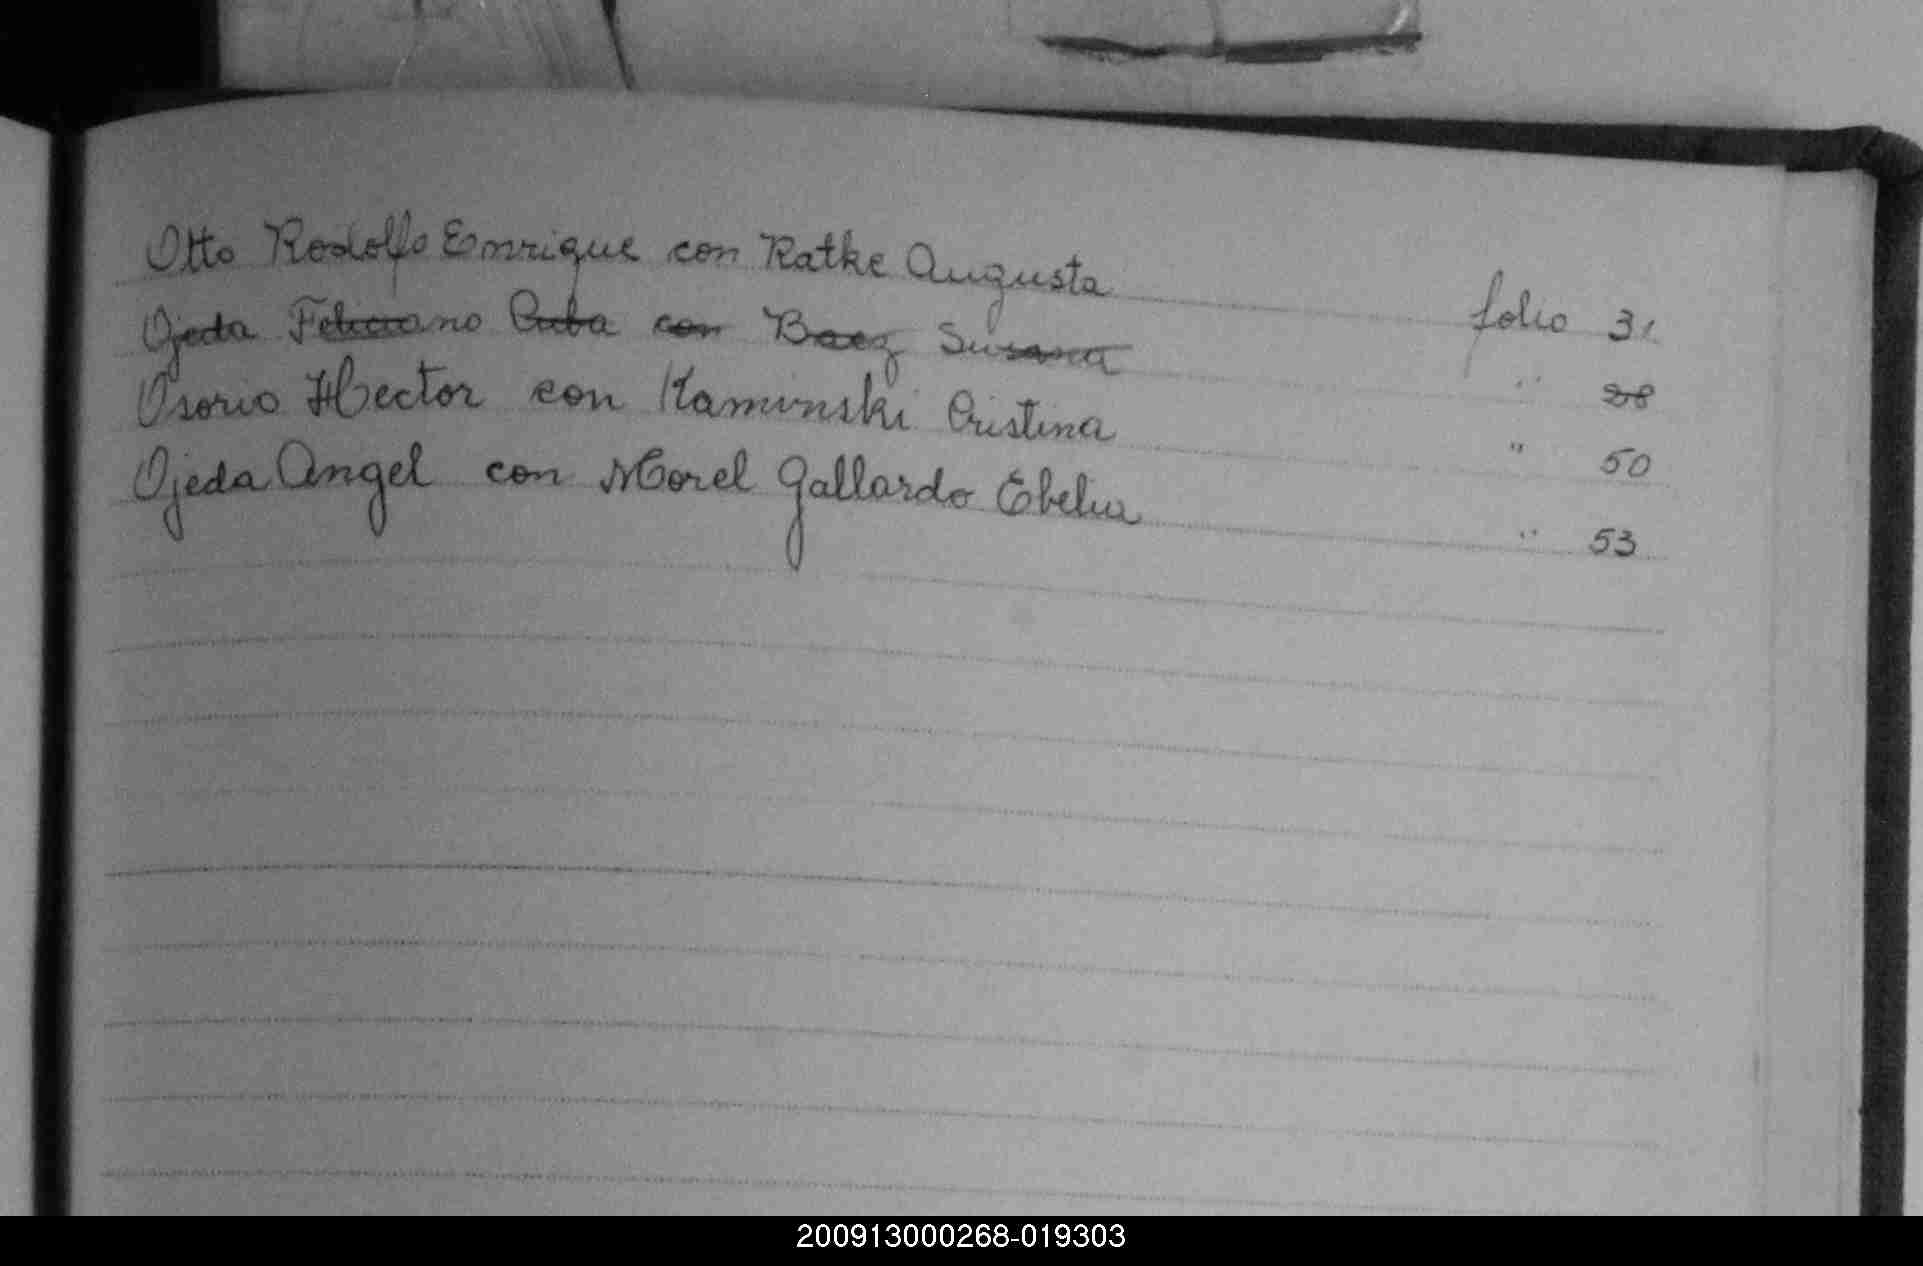 Otto Rodolfo Enrique con Ratke Augusta folio 31
Ojeda Feliciano Cuba con Baez Susana " 28
Osorio Hector con Kaminski Cristina " 50
Ojeda Angel con Morel Gallardo Ebelia " 53
200913000268-019303